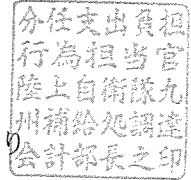 分任支出負担
行為担当官
陸上自衛隊九
州補給処調達
会計部長之印